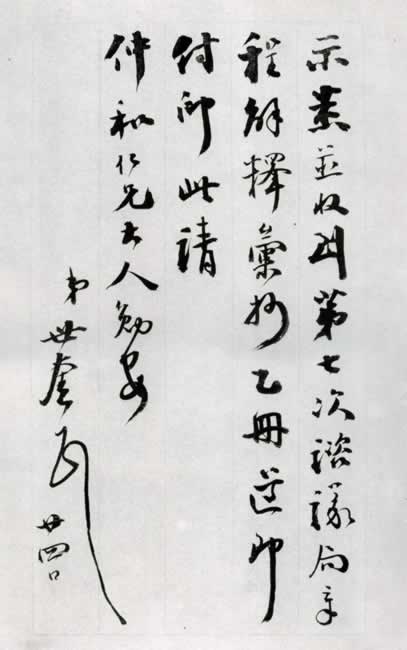 示悉並收到第七次諮議局章
程解釋彙抄乙冊遵即
付印此請
仲和仁兄大人勛安
弟世奎
廿四日